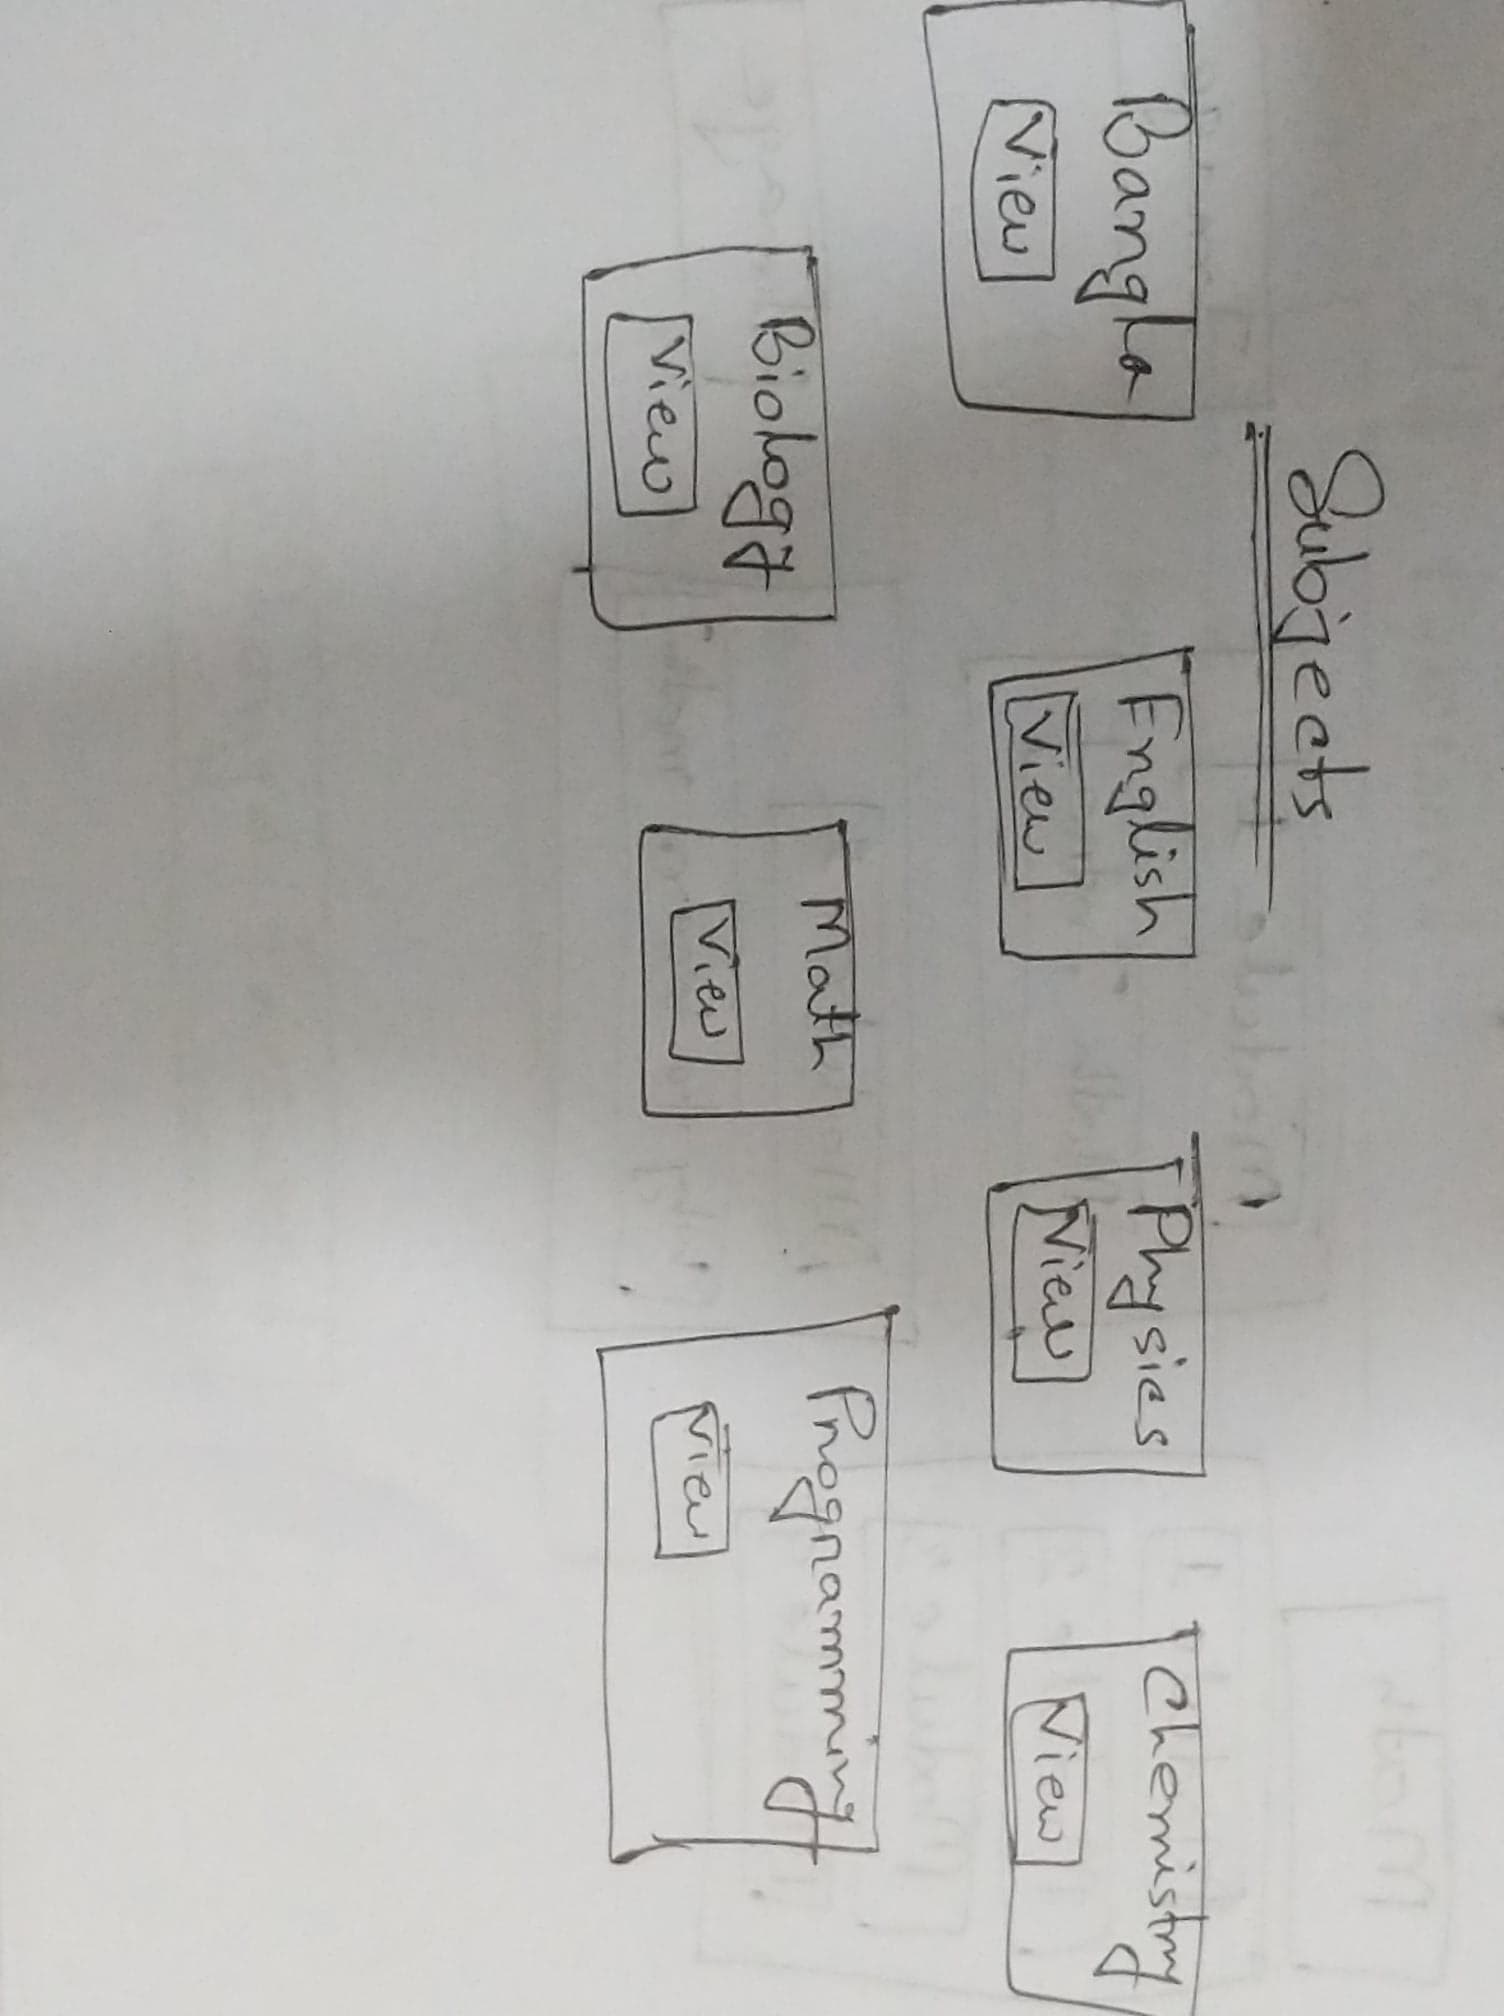 Subjects
Bangla
View
English
View
Physics
View
Chemistry
View
Biology
View
Math
View
Programming
View